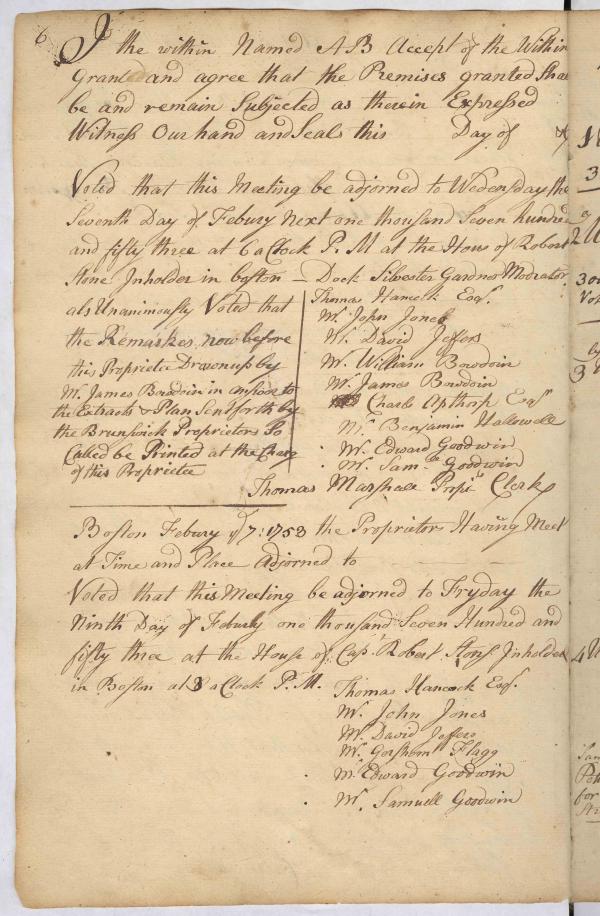 6
I the within Named AB Accept of the Within
Granted and agree that the Premises granted Shall
be and remain Subjected as therein Expressed
Witness Our hand and Seals this Day of
Voted that this Meeting be adjorned to Wedensday the
Seventh Day of Febury Next one thousand Seven hundred
and fifty three at 6 a Clock P. M at the Hous of Robert
Stone Inholder in boston – Dock Silvester Gardner Modrator
als Unanimously Voted that
the Remarkes now before
this Proprietee Drawn up by
Mr. James Bowdoin in answer to
the Extracts & Plan Sent forth by
the Brunswick Proprietors So
Called be Printed at the Charg
of this Proprietee
Thomas Hancock Esqr.
Mr. John Jones
Mr. David Jeffers
Mr. William Bowdoin
Mr. James Bowdoin
Charls Apthorp Esqr
Mr. Benjamin Hallowell
Mr. Edward Goodwin
Mr. Saml. Goodwin
Thomas Marshall Propts Clerk
Boston Febury ye 7: 1753 the Proprietors Having Meet
at Time and Place Adjorned to
Voted that this Meeting be adjorned to Fryday the
Ninth Day of Febury one thousand Seven Hundred and
fifty three at the House of Capt. Robert Stons Inholder
in Boston at 3 a Clock P. M.
Thomas Hancock Esqr.
Mr. John Jones
Mr. David Jeffers
Mr. Gershom Flagg
Mr. Edward Goodwin
Mr. Samuell Goodwin